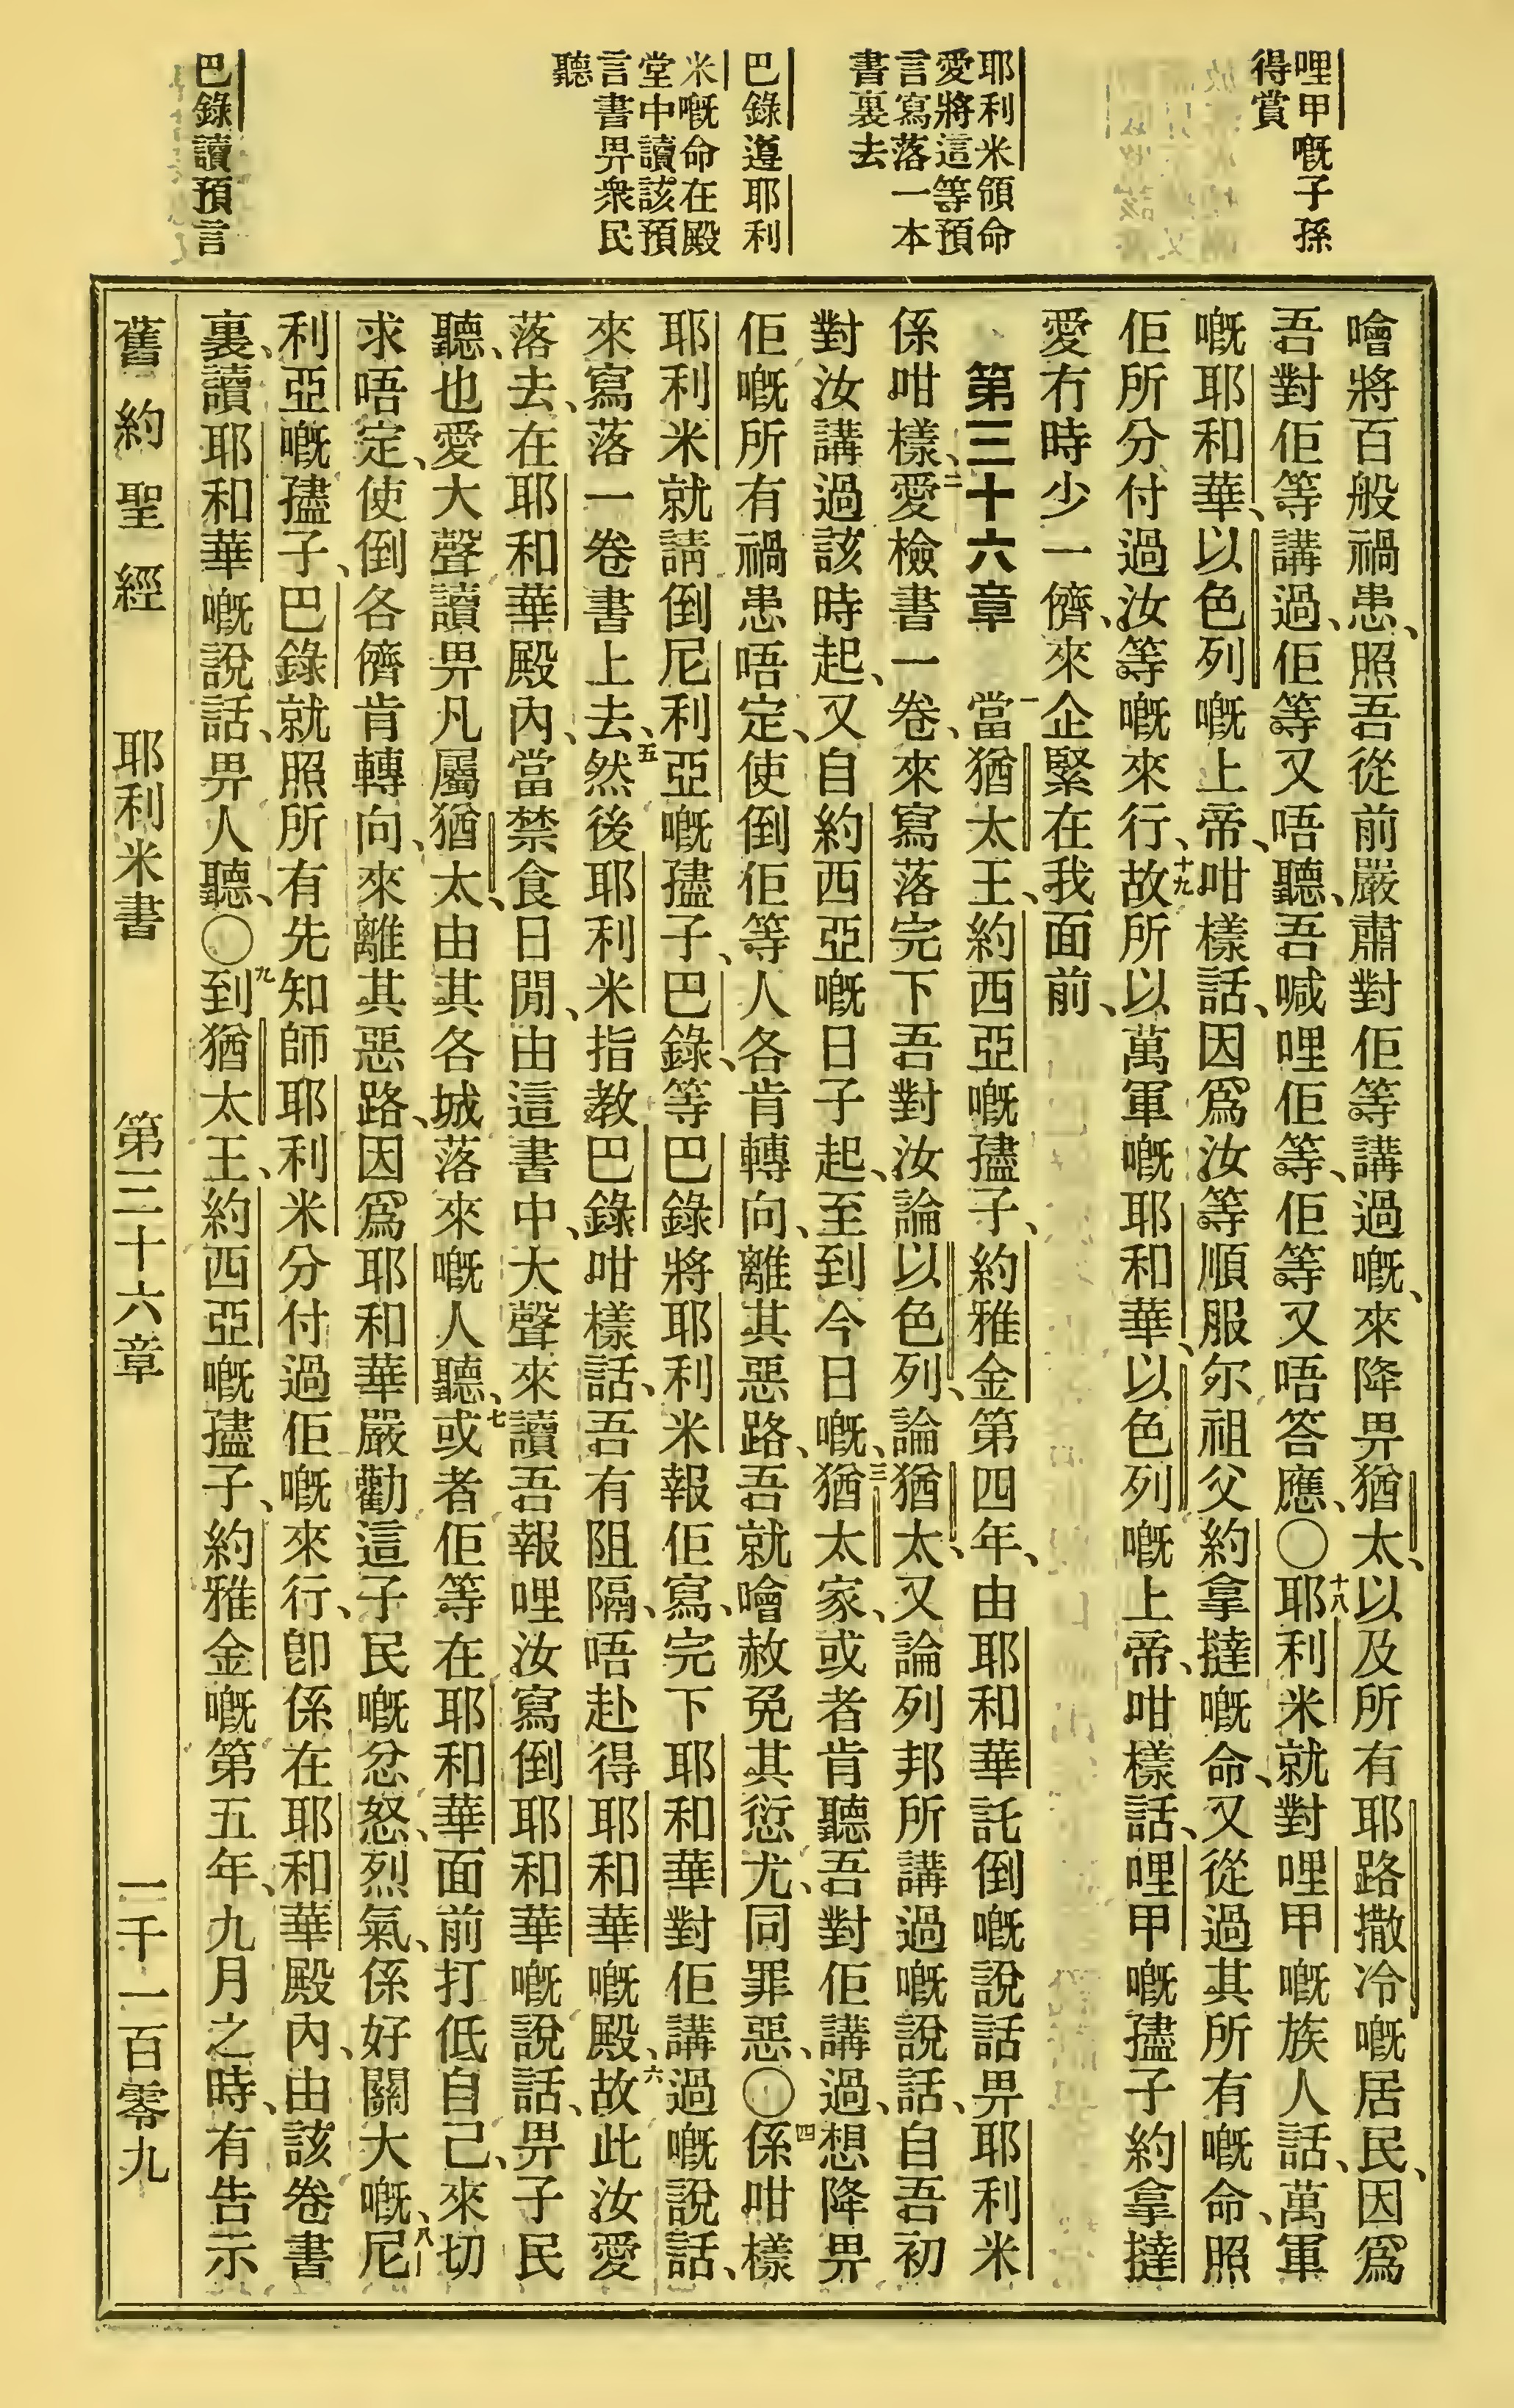 哩甲嘅子孫
得賞
耶利米領命
愛將這等預
言寫落一本
書裏去
巴錄遵耶利
米嘅命在殿
堂中讀該預
言書畀衆民
聽
巴錄讀預言
噲將百般禍患、照吾從前嚴肅對佢等講過嘅、來降畀猶太、以及所有耶路撒冷嘅居民、因爲
吾對佢等講過、佢等又唔聽、吾喊哩佢等、佢等又唔答應、〇十八耶利米就對哩甲嘅族人話、萬軍
嘅耶和華、以色列嘅上帝、咁樣話、因爲汝等順服尔祖父約拿撻嘅命、又從過其所有嘅命、照
佢所分付過汝等嘅來行、十九故所以萬軍嘅耶和華、以色列嘅上帝、咁樣話、哩甲嘅孻子約拿撻
愛冇時少一儕、來企緊在我面前、
第三十六章 一當猶太王、約西亞嘅孻子、約雅金第四年、由耶和華託倒嘅說話畀耶利米
係咁樣、二愛檢書一卷、來寫落完下吾對汝論以色列、論猶太、又論列邦所講過嘅說話、自吾初
對汝講過該時起、又自約西亞嘅日子起、至到今日嘅、三猶太家、或者肯聽吾對佢講過、想降畀
佢嘅所有禍患唔定、使倒佢等人各肯轉向、離其惡路、吾就噲赦免其愆尤、同罪惡、〇四係咁樣
耶利米就請倒尼利亞嘅孻子、巴錄、等巴錄將耶利米報佢寫、完下耶和華對佢講過嘅說話、
來寫落一卷書上去、五然後耶利米指教巴錄咁樣話、吾有阻隔、唔赴得耶和華嘅殿、六故此汝愛
落去、在耶和華殿內、當禁食日閒、由這書中、大聲來讀吾報哩汝寫倒耶和華嘅說話、畀子民
聽、也愛大聲讀畀凡屬猶太、由其各城落來嘅人聽、七或者佢等在耶和華面前打低自己、來切
求唔定、使倒各儕肯轉向、來離其惡路、因爲耶和華嚴勸這子民嘅忿怒、烈氣、係好關大嘅、八尼
利亞嘅孻子、巴錄就照所有先知師耶利米分付過佢嘅來行、卽係在耶和華殿內、由該卷書
裏、讀耶和華嘅說話、畀人聽、〇九到猶太王、約西亞嘅孻子、約雅金嘅第五年、九月之時、有告示
舊約聖經 耶利米書 第三十六章 一千一百零九